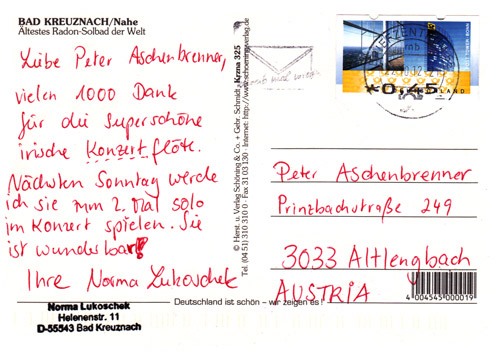 BAD KREUZNACH/Nahe
Ältestes Radon-Solbad der Welt
Liebe Peter Aschenbrenner,
vielen 1000 Dank
für die superschöne
irische Konzertflöte.
Nächsten Sonntag werde
ich sie zum 2. Mal solo
im Konzert spielen. Sie
ist wunderbar!
Ihre Norma Lukoschek
Norma Lukoschek
Helenenstr. 11
D-55543 Bad Kreuznach
© Herst. u. Verlag Schöning & Co. + Gebr. Schmidt, Krma 325
Tel. (04 51) 310 310 · Fax 31 03 130 Internet: http://www.schoening-verlag.de
Deutschland ist schön – wir zeigen es!
*0,65
DEUTSCHLAND
Peter Aschenbrenner
Prinzbachstraße 249
3033 Altlengbach
AUSTRIA
4 004545 000019